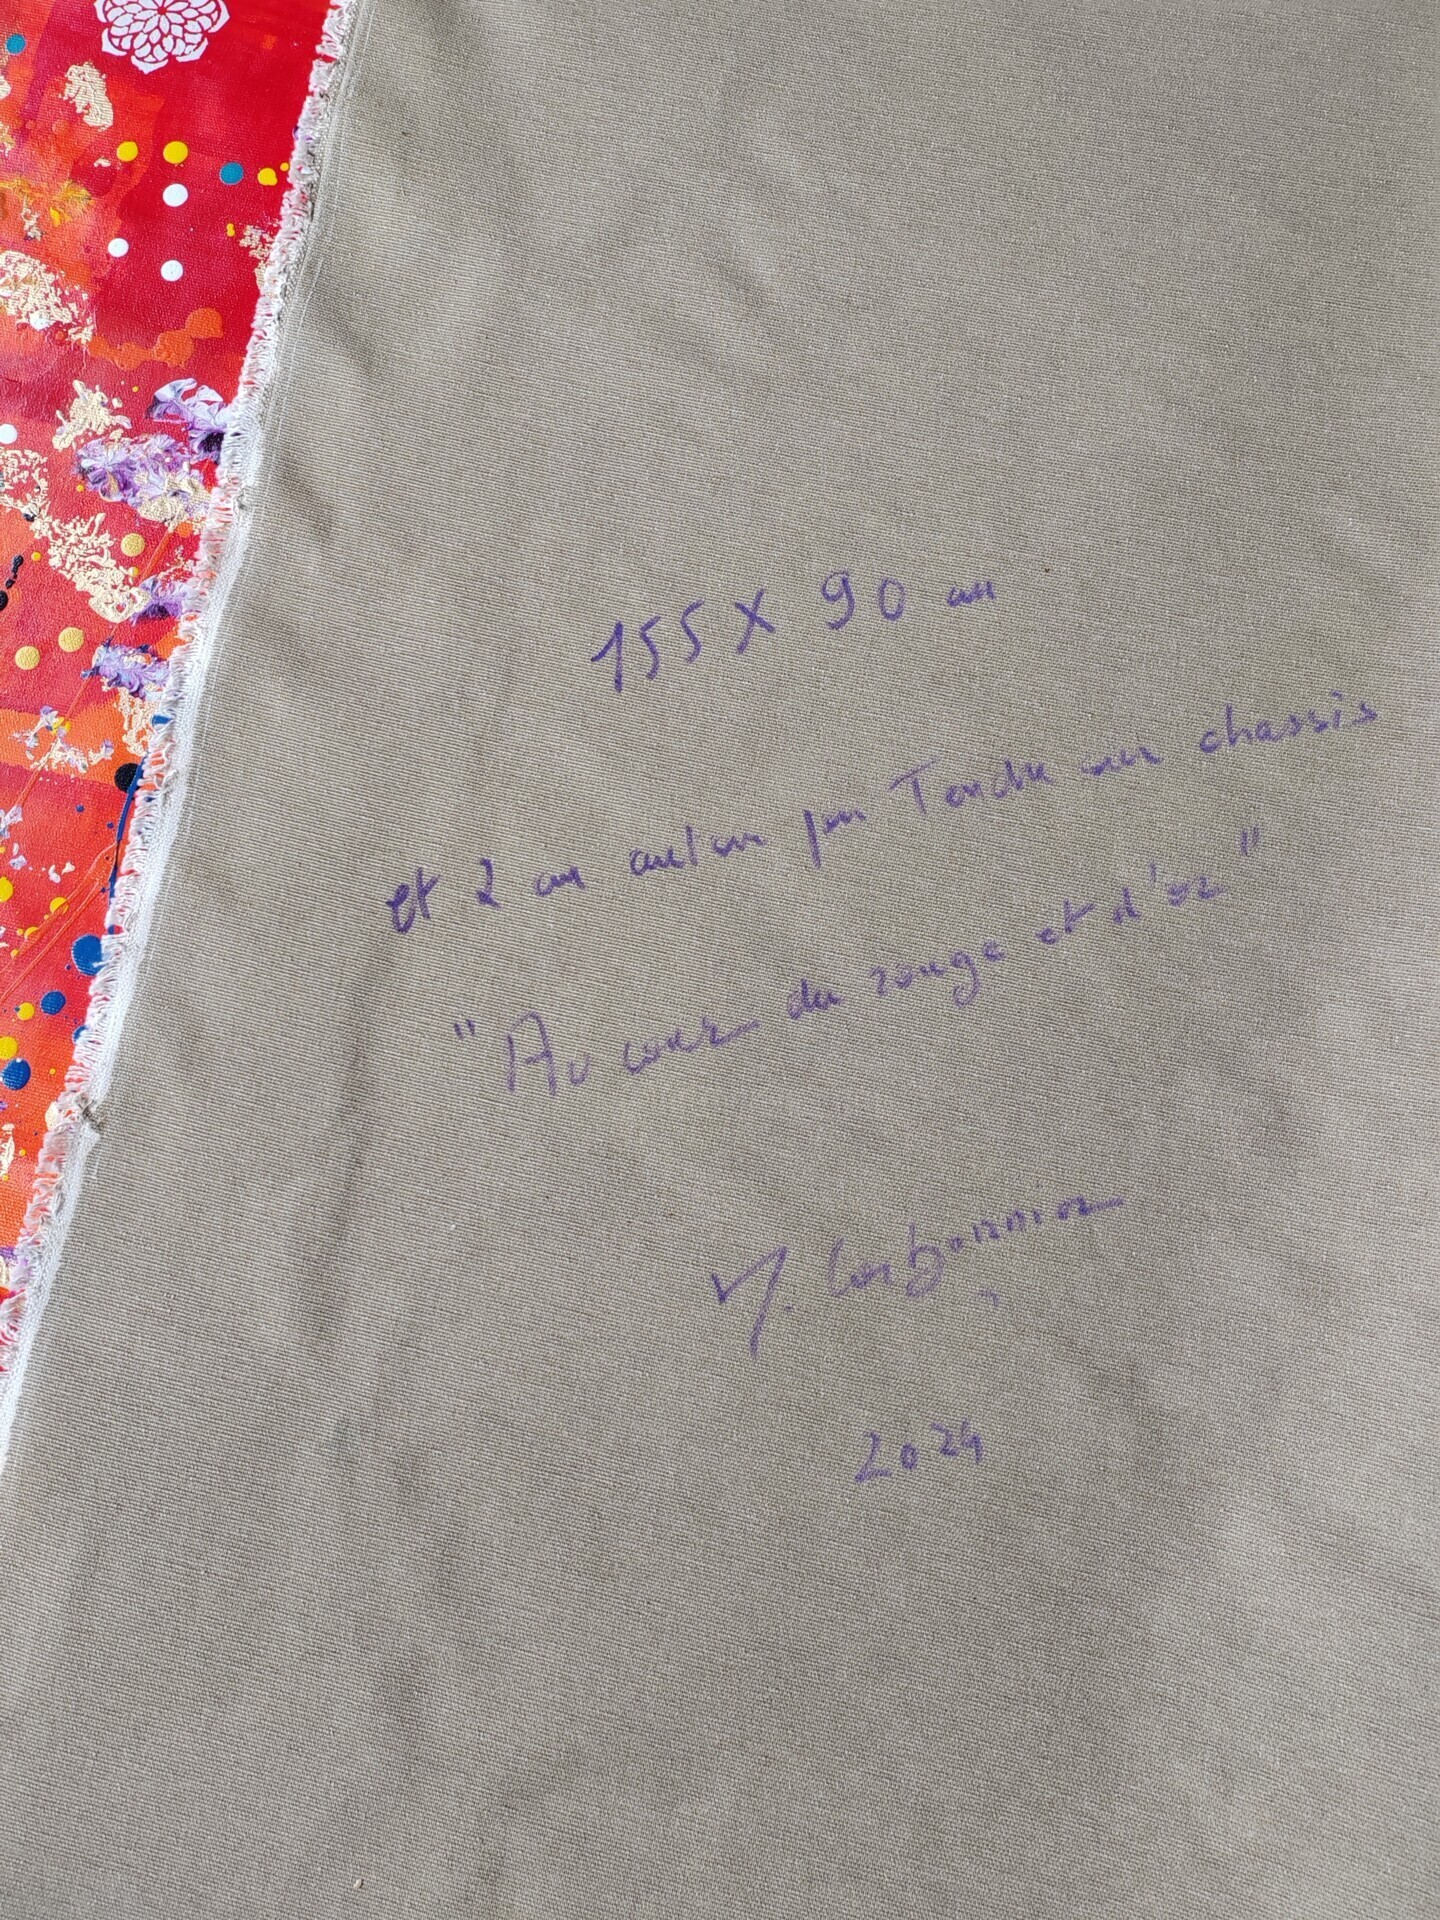 155 X 90 cm
et 2 cm autour pour Tendre sur chassis
"Au cœur du rouge et d'or"
2024